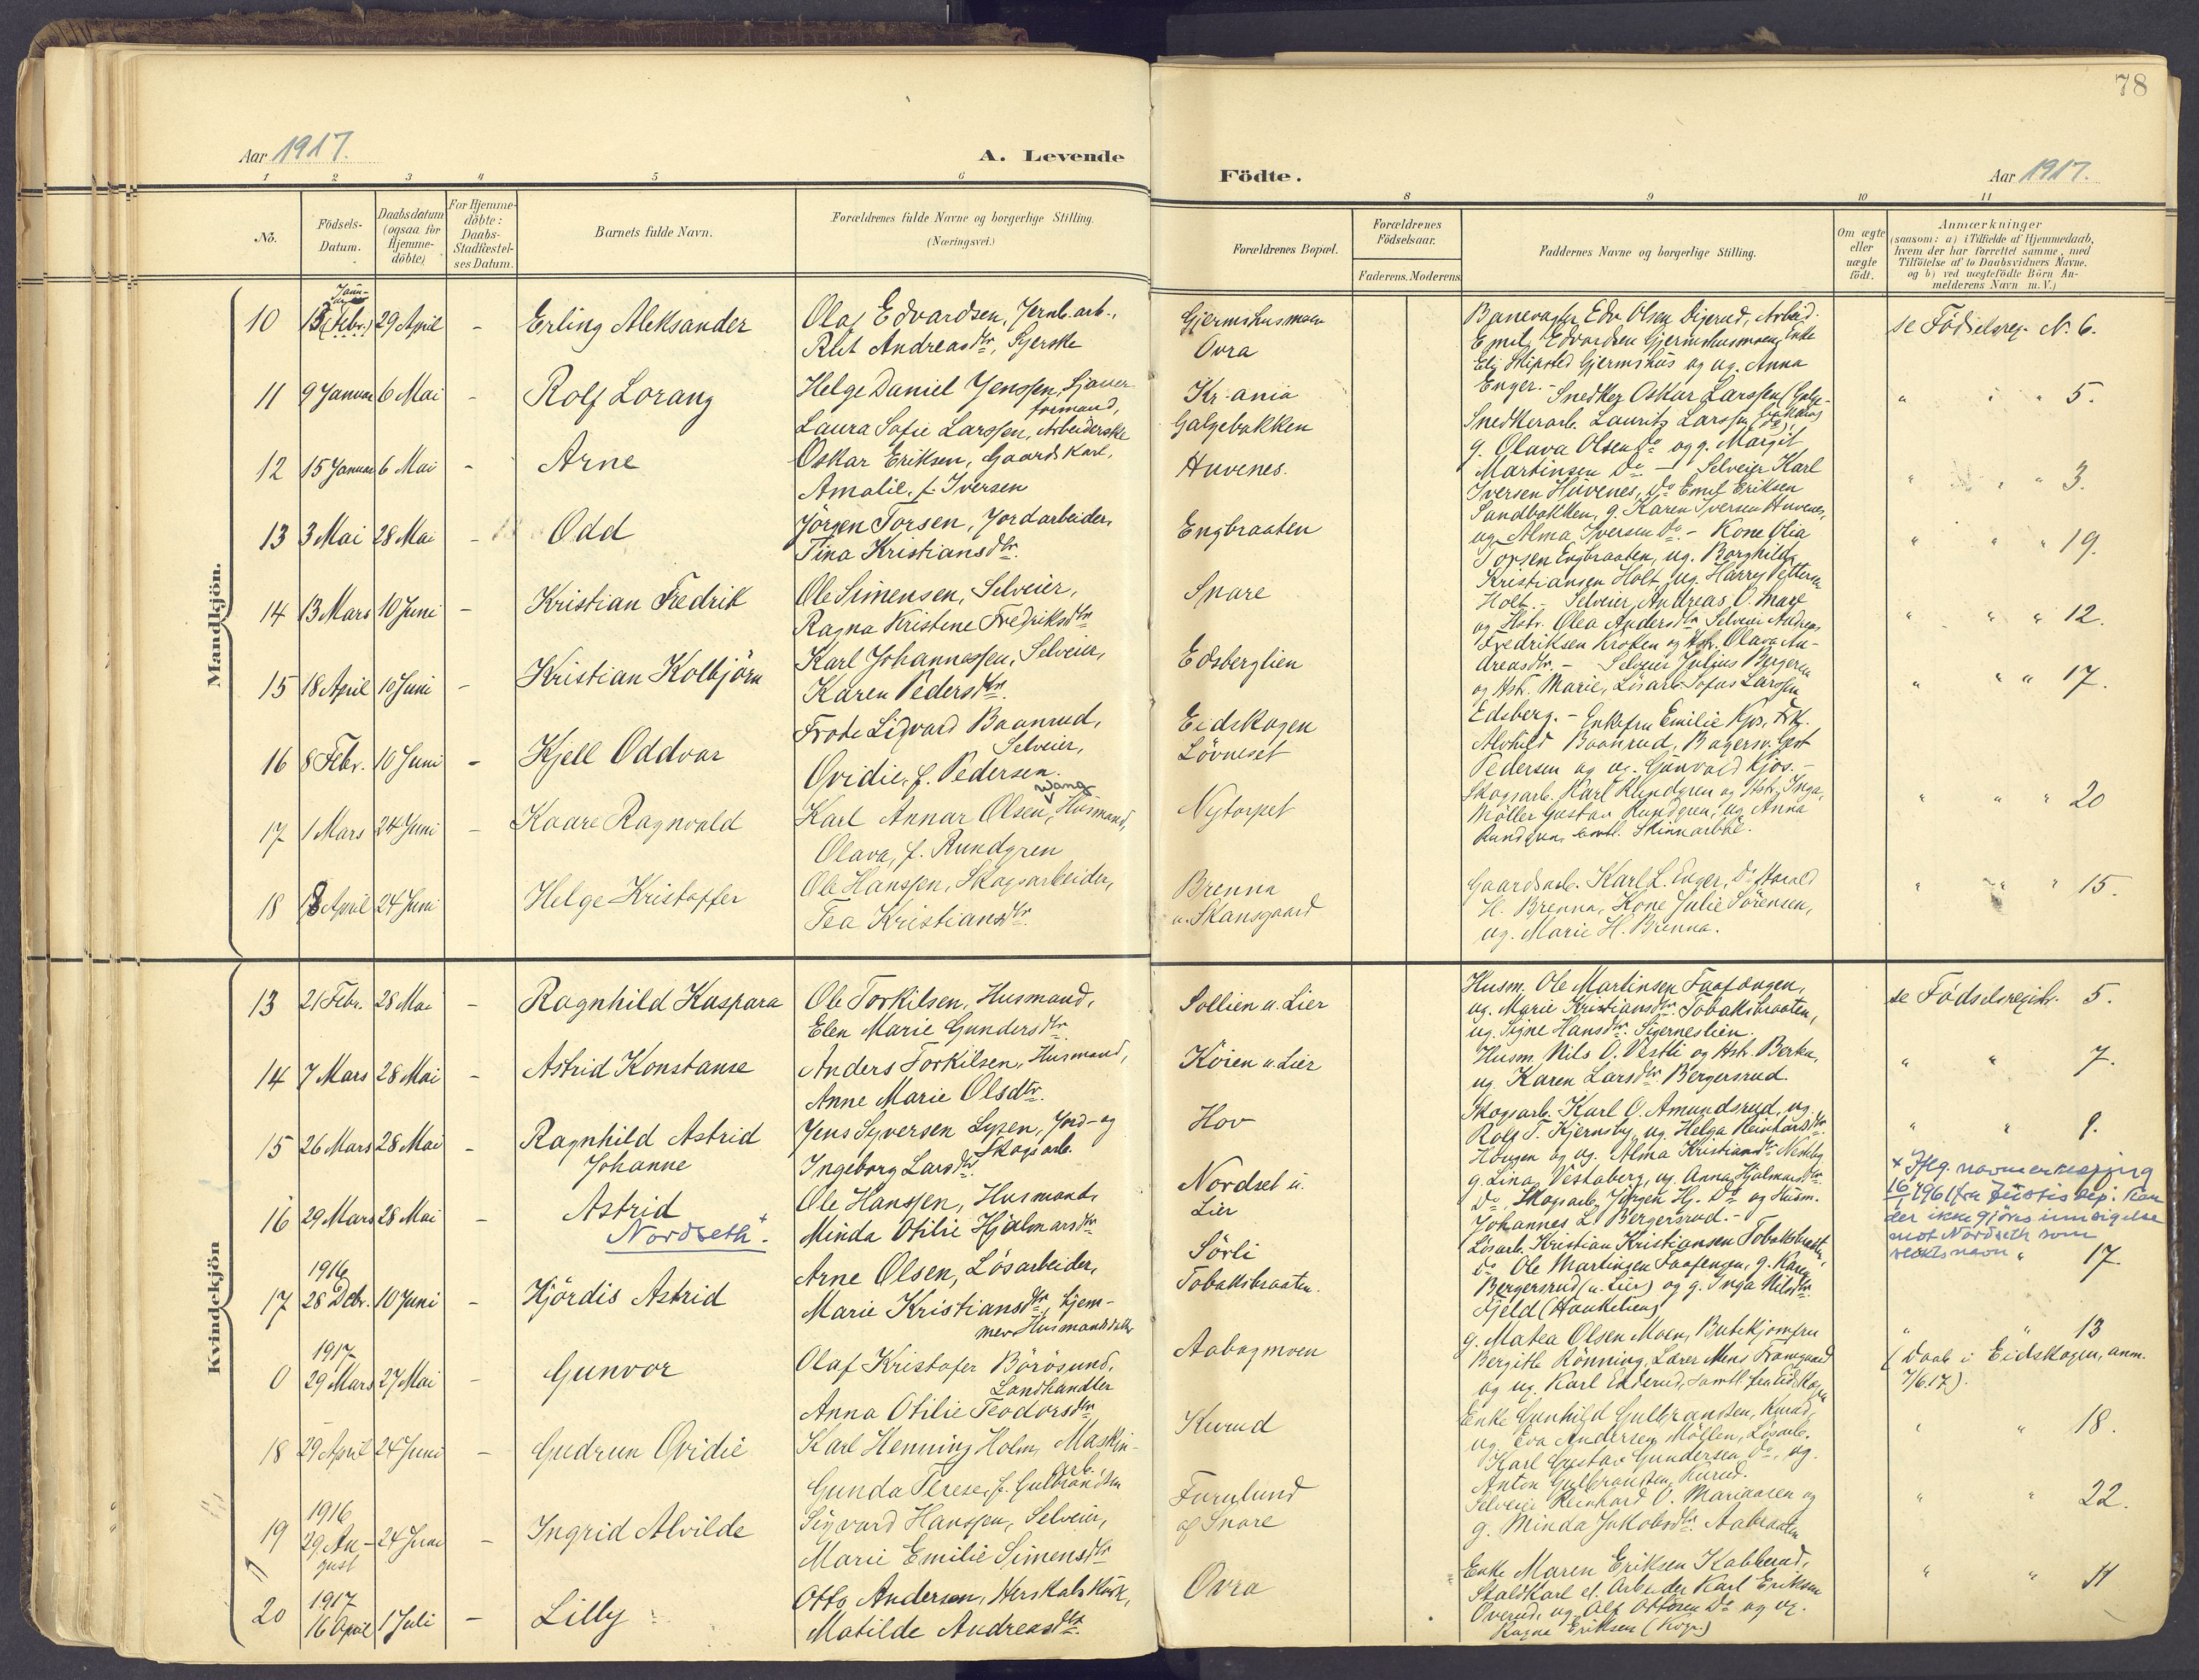 78
Aar 1917.
A. Levende
Födte.
Aar 1917.
1 2 3 4 5 6
8 9 10 11
No.
Födsels-
Datum.
Daabsdatum
(ogsaa for
Hjemme-
döbte)
For Hjemme-
döbte:
Daabs-
Stadfæstel-
ses Datum.
Barnets fulde Navn.
Forældrenes fulde Navne og borgerlige Stilling.
(Næringsvei.)
Forældrenes Bopæl.
Forældrenes
Födselsaar.
Faderens. Moderens
Faddernes Navne og borgerlige Stilling.
Om ægte
eller
uægte
födt.
Anmærkninger
(saasom: a) i Tilfælde af Hjemmedaab,
hvem der har forrettet samme, med
Tilföielse af to Daabsvidners Navne.
og b) ved uægtefödte Börn An-
melderens Navn m. V.)
Mandkjön.
10 (Febr.) 29 April - Erling Aleksander
Olaf Edvardsen, Jernb. arb.,
Rut Andreasdtr, Syerske
Gjermshusmoen
Ovra
Banevogter Edv. Olsen Digerud, Arbeid.
Emil Edvardsen Gjermshusmoen, Enke
Gjermshus og ug. Anna
Enger. -
se Födselsreg. N. 6.
11 9 Januar 6 Mai - Rolf Lorang
Helge Daniel Jenssen, Sjauer
formand,
Laura Sofie Larssen, Arbeiderske
Kr.ania
Galgebakken
Snedker Oskar Larssen (Galge-
Snedkerarb. Lauritz Larssen
g. Olava Olsen Do og g. Margit
Martinsen Do -
" " " 5.
12 15 Januar 6 Mai - Arne
Oskar Eriksen, Gaardskarl,
Amalie, f. Iversen
Huvenes.
Selveier Karl
Iversen Huvenes, Do Emil Eriksen
Sandbakken, g. Karen Iversen Huvenes,
ug. Alma Iversen Do. -
" " " 3.
13 3 Mai 28 Mai - Odd
Jörgen Torsen, Jordarbeider,
Tina Kristiansdtr.
Engbraaten
Kone Olia
Torsen Engbraaten, ug. Borghild
Kristiansen Holt, ug. Harry Pettersen
Holt. -
" " " 19.
14 13 Mars 10 Juni - Kristian Fredrik
Ole Simensen, Selveier,
Ragna Kristine Fredriksdtr
Snare
Selveier Andreas O. Snare
og Hstr. Olea Andersdtr Selveier Andreas
Fredriksen Kroken og Hstr. Olava An-
dreasdtr. -
" " " 12.
15 18 April 10 Juni - Kristian Kolbjörn
Karl Johannessen, Selveier,
Karen Pedersdtr.
Edsberglien
Selveier Julius Bergersen
og Hstr. Marie, Lösarb. Sofus Larssen
Edsberg. -
" " " 17.
16 8 Febr. 10 Juni - Kjell Oddvar
Frode Sigvard Baanrud,
Selveier,
Ovidie, f. Pedersen.
Eidskogen
Lövneset
Enkefru Emilie Kjos, Frk.
Alvhild Baanrud, Bagersv. Gust
Pedersen og ug. Gunvald Kjos. -
17 1 Mars 24 Juni - Kaare Ragnvald
Wang
Karl Annar Olsen, Husmand,
Olava, f. Rundgren
Nytorpet
Skogsarb. Karl Rundgren og Hstr. Inga,
Möller Gustav Rundgren, ug. Anna
Rundgren, samtl. Skinnarböl.
" " " 20
18 8 April 24 Juni Helge Kristoffer
Ole Hanssen, Skogsarbeider,
Tea Kristiansdtr.
Brenna
u. Skansgaard
Gaardsarb. Karl L. Enger, Do Harald
H. Brenna, Kone Julie Sörensen,
ug. Marie H. Brenna.
" " " 15.
Kvindekjön
13 21 Febr. 28 Mai - Ragnhild Kaspara
Ole Torkilsen, Husmand,
Elen Marie Gundersdtr.
Sollien u. Lier
Husm. Ole Martinsen Faafangen,
ug. Marie Kristiansdtr. Tobaksbraaten,
ug. Signe Hansdtr. Sigerneslien.
se Födselsregistr. 5.
14 7 Mars 28 Mai - Astrid Konstanse
Anders Torkilsen, Husmand,
Anne Marie Olsdtr.
Köien u. Lier
Husm. Nils O. Vestli og Hstr. Berta,
ug. Karen Larsdtr. Bergersrud.
" " 7.
15 26 Mars 28 Mai - Ragnhild Astrid
Johanne
Jens Syversen Lysen, Jord- og
Skogsarb.
Ingeborg Larsdtr.
Hov
Skogsarb. Karl O. Amundsrud, ug.
Rolf T. Kjernsby, ug. Helga Reinhardsdtr.
Haugen og ug. Alma Kristiansdtr Nesteby
" " 9.
16 29 Mars 28 Mai - Astrid
Nordseth. +
Ole Hanssen, Husmand,
Minda Otilie Hjalmarsdtr
Nordset u.
Lier
g. Lina Vestaberg, ug. Anna Hjalmarsdtr
Do, Skogsarb. Jörgen Hj. Do og Husm.
Johannes L. Bergersrud. -
+ Iflg. navneerkläring
16/1 1961 fra Justisdep. kan
der ikke gjöres innsigelse
mot Nordseth som
slektsnavn "
17 1916
28 Debr. 10 Juni - Hjördis Astrid
Arne Olsen, Lösarbeider,
Marie Kristiansdtr, hjem-
mev. Husmandsdatter
Sörli
Tobaksbraaten.
Lösarb. Kristian Kristiansen Tobaksbraaten,
Do Ole Martinsen Faafengen, g. Karen
Bergersrud (u. Lier) og g. Inga Nilsdtr.
Fjeld (Haukelien)
17.
0 1917
29 Mars 27 Mai - Gunvor
Olaf Kristofer Börösund,
Landhandler
Anna Otilie Teodorsdtr
Aabogmoen
g. Matea Olsen Moen, Butikjomfru
Bergitte Rönning, Lærer Mens Framgaard
og ug. Karl Enderud, samtl. fra Eidskogen
" " 13
(Daab i Eidskogen, anm.
7/6.17).
18 29 April 24 Juni - Gudrun Ovidie
Karl Henning Holm, Maskin-
arb.
Gunda Terese, f. Gulbrandsen
Kurud
Enke Gunhild Gulbrandsen, Kurud,
ug. Eva Andersen Möllen, Lösarb.
Karl Gustav Gundersen Do, ug.
Anton Gulbrandsen, Kurud.
" " 18.
19 1916
29 Au-
gust 24 Juni - Ingrid Alvilde
Sigvard Hanssen, Selveier,
Marie Emilie Simensdtr
Furulund
af Snare
Selveier Reinhard O. Mariaasen og
g. Minda Jakobsdtr. Aabraaten
" " 22.
20 1917
16 April 1 Juli - Lilly
Otto Andersen, Herskabskusk,
Matilde Andreasdtr.
Ovra
Enke Maren Eriksen Kabberud,
Staldkarl el. Arbeider Karl Eriksen
Overud, ug. Alf Ottosen Do og ug.
Ragna Eriksen (Kogn.)
" " 11